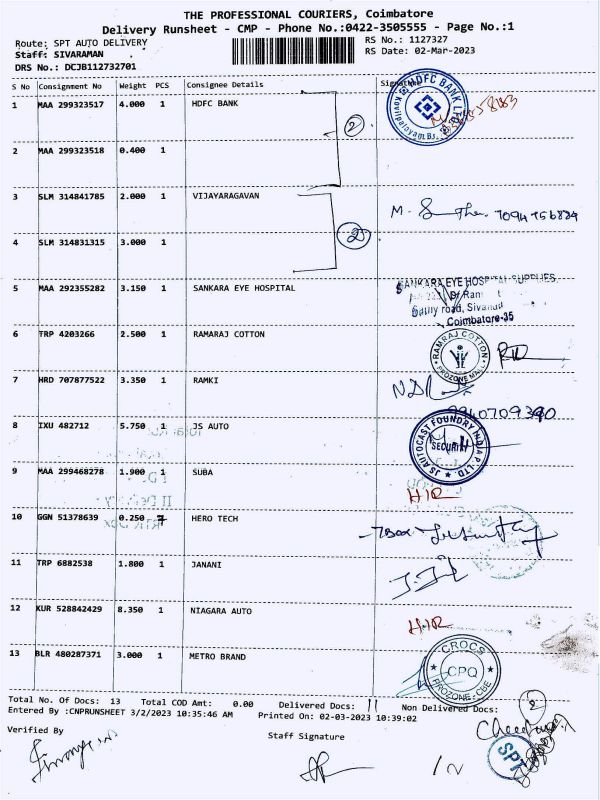 THE PROFESSIONAL COURIERS, Coimbatore
Delivery Runsheet - CMP - Phone No.:0422-3505555 - Page No.:1
Route: SPT AUTO DELIVERY
RS No.: 1127327
Staff: SIVARAMAN
RS Date: 02-Mar-2023
DRS No.: DCJB112732701
S No Consignment No Weight PCS Consignee Details Signature
1 MAA 299323517 4.000 1 HDFC BANK
HDFC BANK LTD
Kovilpalayam Br.
2
2 MAA 299323518 0.400 1
3 SLM 314841785 2.000 1 VIJAYARAGAVAN
2
4 SLM 314831315 3.000 1
5 MAA 292355282 3.150 1 SANKARA EYE HOSPITAL
SANKARA EYE HOSPITAL SUPPLIES
Coimbatore-35
6 TRP 4203266 2.500 1 RAMARAJ COTTON
RAMRAJ COTTON
PROZONE MALL
7 HRD 707877522 3.350 1 RAMKI
8 IXU 482712 5.750 1 JS AUTO
JS AUTOCAST FOUNDRY INDIA P-LTD.
SECURITY
9 MAA 299468278 1.900 1 SUBA
H/R
10 GGN 51378639 0.250 7 HERO TECH
11 TRP 6882538 1.800 1 JANANI
12 KUR 528842429 8.350 1 NIAGARA AUTO
H/R
13 BLR 480287371 3.000 1 METRO BRAND
CROCS
CPQ
PROZONE-CBE
Total No. Of Docs: 13 Total COD Amt: 0.00 Delivered Docs: 11 Non Delivered Docs: 2
Entered By :CNPRUNSHEET 3/2/2023 10:35:46 AM Printed On: 02-03-2023 10:39:02
Verified By
Staff Signature
SPT